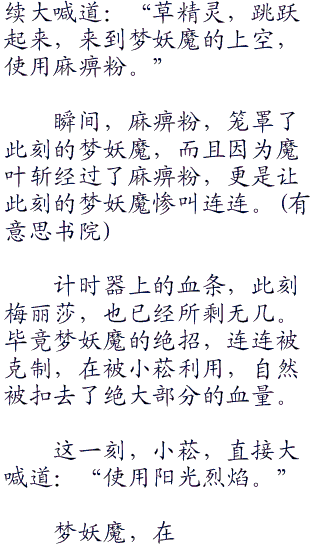 续大喊道：“草精灵，跳跃
起来，来到梦妖魔的上空，
使用麻痹粉。”
瞬间，麻痹粉，笼罩了
此刻的梦妖魔，而且因为魔
叶斩经过了麻痹粉，更是让
此刻的梦妖魔惨叫连连。(有
意思书院)
计时器上的血条，此刻
梅丽莎，也已经所剩无几。
毕竟梦妖魔的绝招，连连被
克制，在被小菘利用，自然
被扣去了绝大部分的血量。
这一刻，小菘，直接大
喊道：“使用阳光烈焰。”
梦妖魔，在